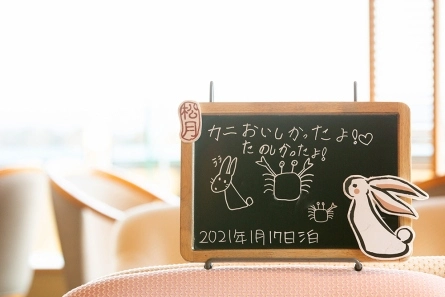 松月
カニおいしかったよ!♡
たのしかったよ!
2021年1月17日泊